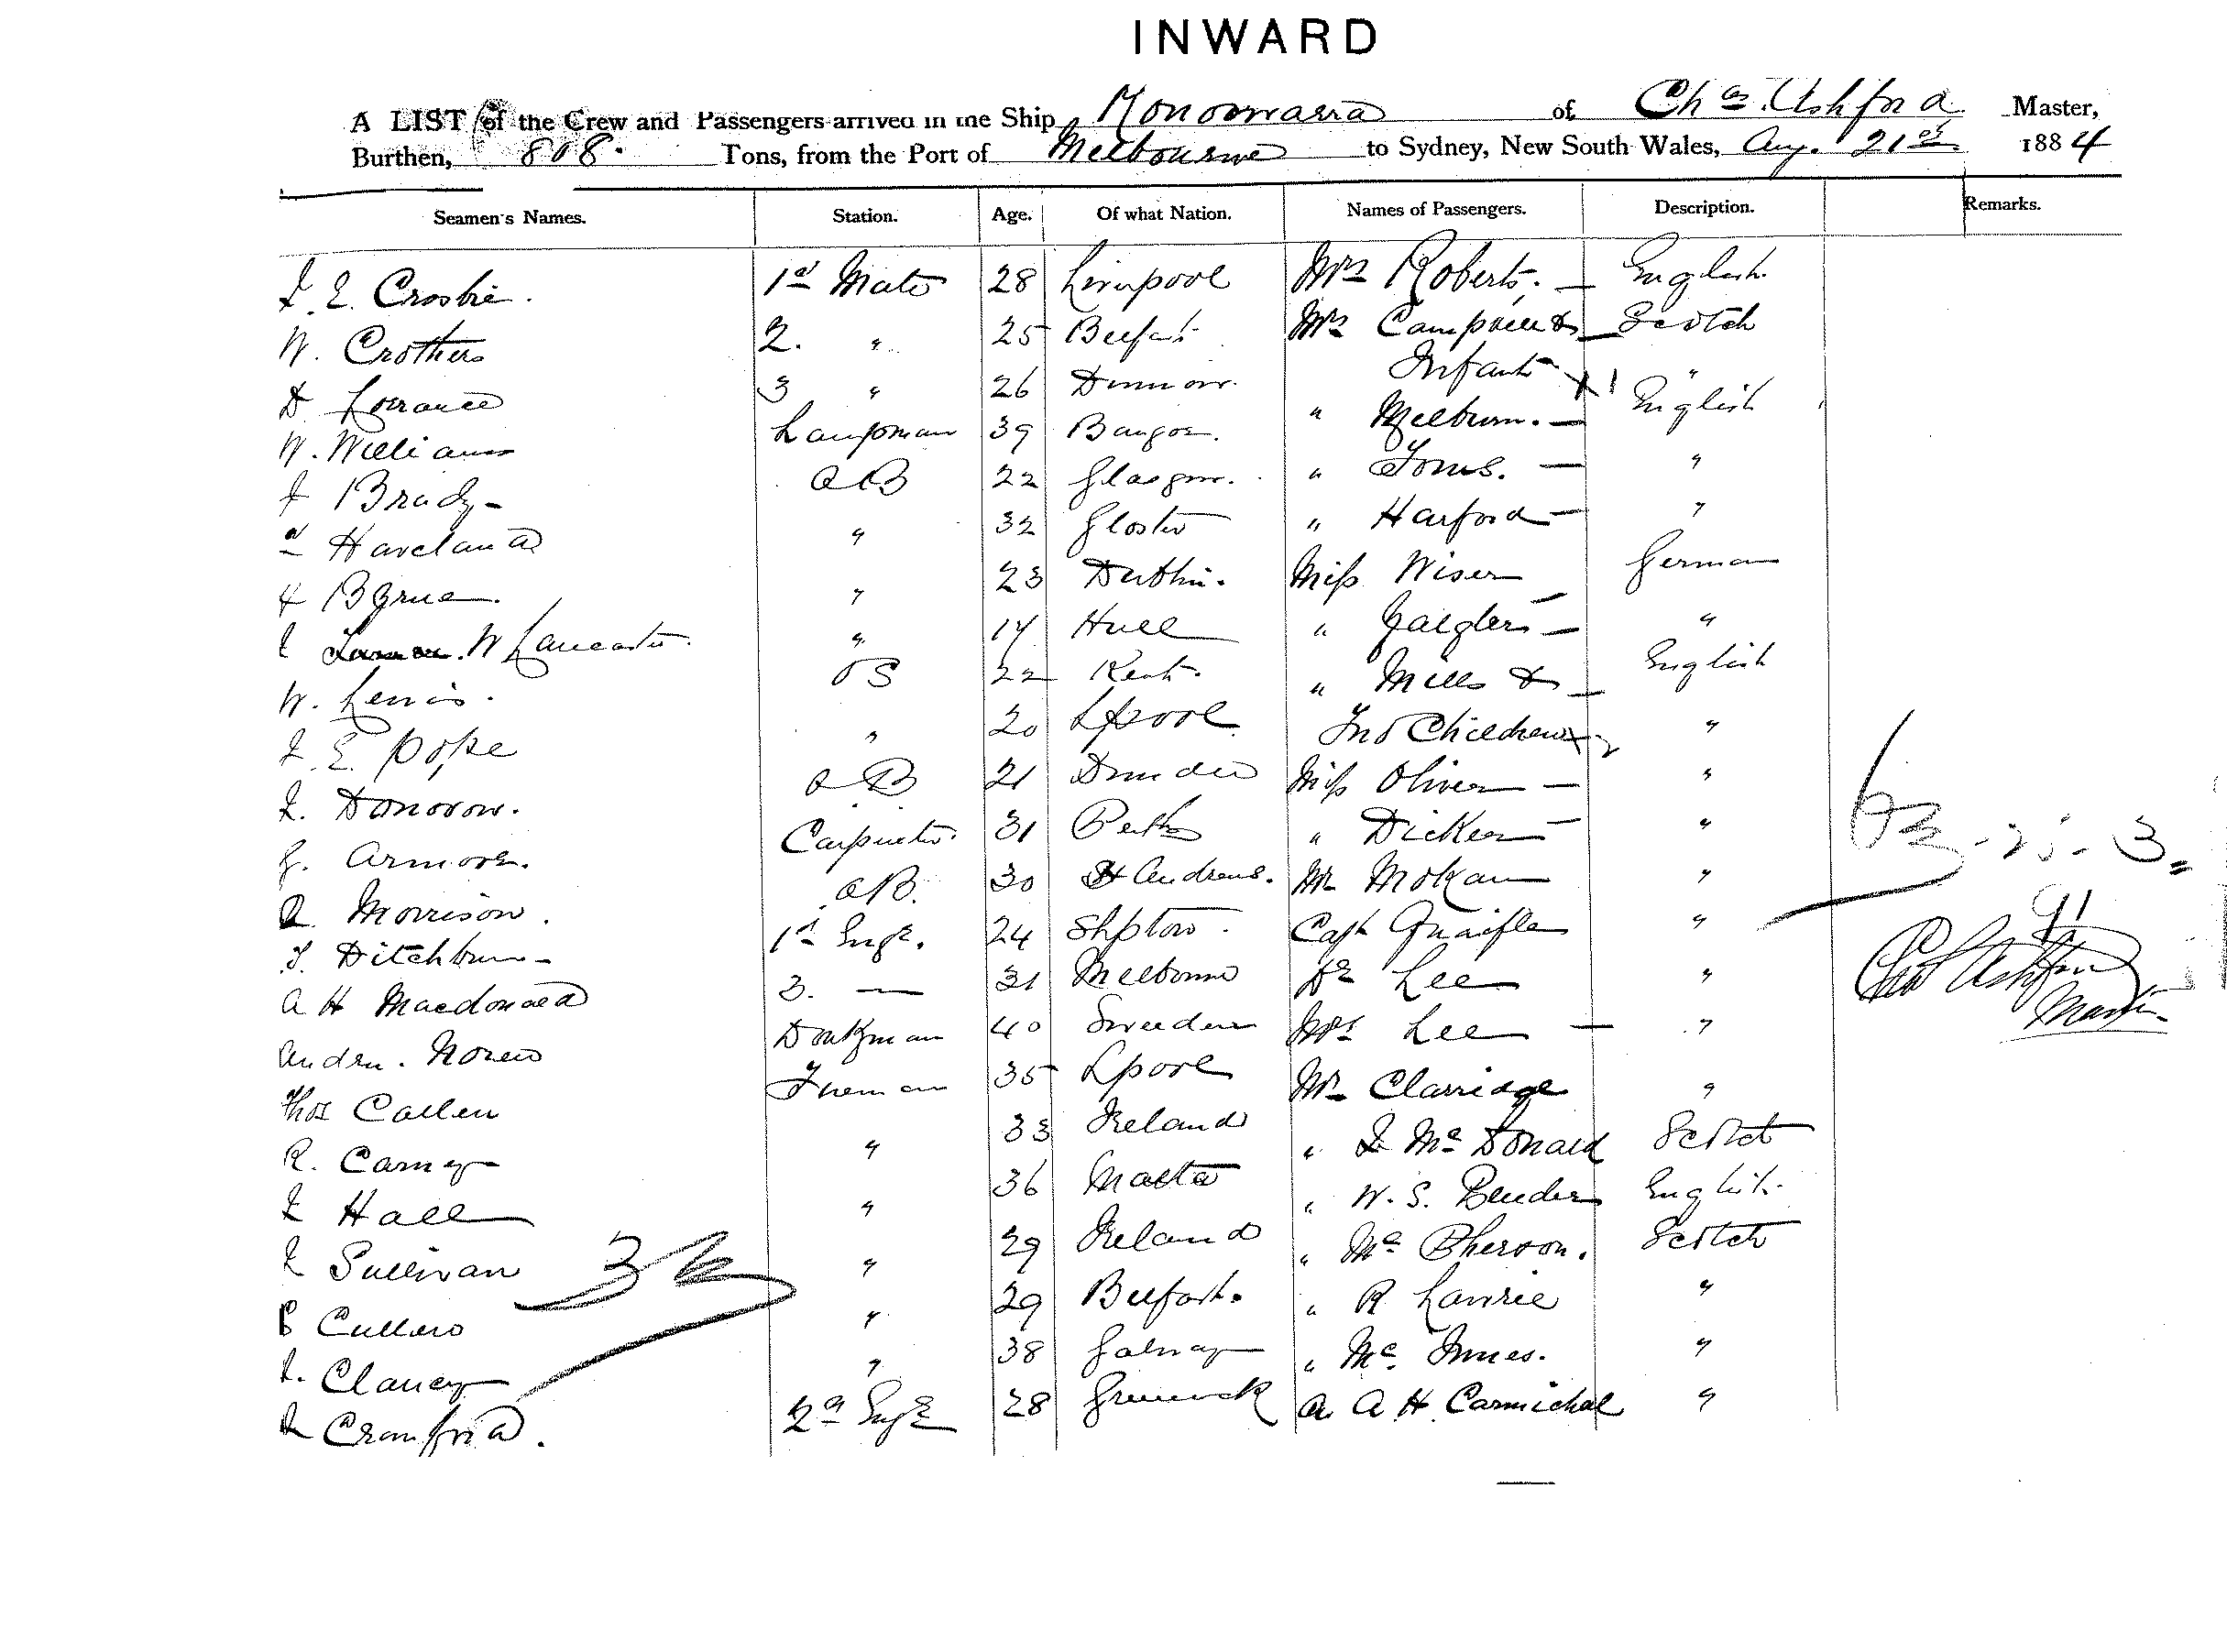 INWARD
A LIST of the Crew and Passengers arrived in the Ship Konoowarra of Chas. Ashford Master,
Burthen, 808. Tons, from the Port of Melbourne to Sydney, New South Wales, Aug. 21st 1884
Seamen's Names. Station. Age. Of what Nation. Names of Passengers. Description. Remarks.
J. E. Crosbie. 1st Mate 28 Liverpool Mrs Roberts. — English
W. Crothers 2. " 25 Belfast Mrs Campbell & — Scotch
D Lorrance 3 " 26 Infant 1 "
W. Williams Lampman 39 Bangor. " Melburn. — English
J Brady - AB 22 Glasgow. " Toms. — "
Haveland " 32 Gloster " Harford — "
Byrne. " 23 Dublin. Miss Wiser — German
W Lancaster " 17 Hull " — "
W. Lewis. OS 22 Kent. " Mills & — English
J. E. Pope " 20 Lpool Two Children 2 "
J. Donovon. AB 21 Dundee Miss Oliver — "
G. Armor. Carpenter 31 Perth " Dicker — "
D. Morrison. AB. 30 St Andrews. Mr Mokau "
T. Ditchburn - 1st Engr. 24 Shptow. Capt Quaifle "
A H Macdonald 3. — 31 Melbourne Dr Lee "
Andrw. Noren Donkyman 40 Sweden Mrs Lee — "
Thos Callen Fireman 35 Lpool Mr Clarridge "
R. Carney " 33 Ireland " J McDonald Scotch
J Hall " 36 Malta " W. S. Bender English.
J Sullivan " 29 Ireland " McPherson. Scotch
P Cullen " 29 Belfast. " R Lawrie "
J. Clancy " 38 Galway " McInnes. "
Crawford. 2nd Engr 28 Greenock A. A H. Carmichal "
Chas Ashford
Master